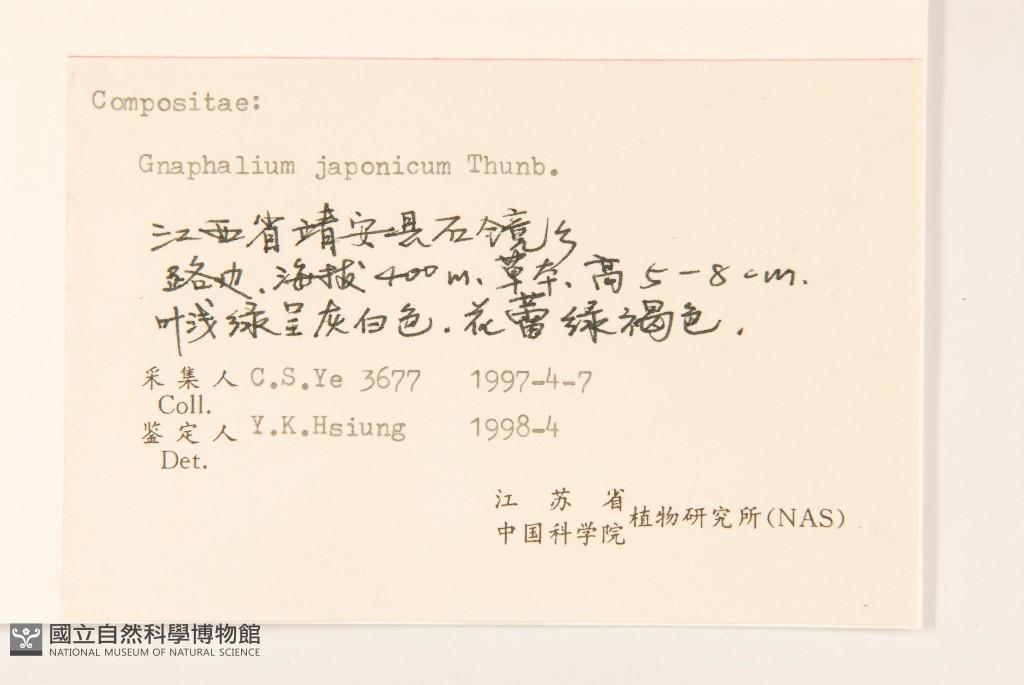 Compositae:
Gnaphalium japonicum Thunb.
江西省靖安县石镜乡
路边.海拔400m.草本.高5-8cm.
叶浅绿呈灰白色.花蕾绿褐色.
采集人 C.S.Ye 3677 1997-4-7
Coll.
鉴定人 Y.K.Hsiung 1998-4
Det.
江苏省
中国科学院 植物研究所(NAS)
國立自然科學博物館
NATIONAL MUSEUM OF NATURAL SCIENCE